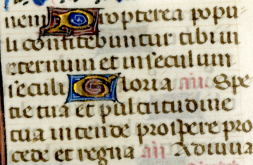 nem Propterea popu
li confitebuntur tibi in
eternum et in seculum
seculi Gloria añ. Spe
cie tua et pulcritudine
tua intende prospere pro
cede et regna añ Adiuva